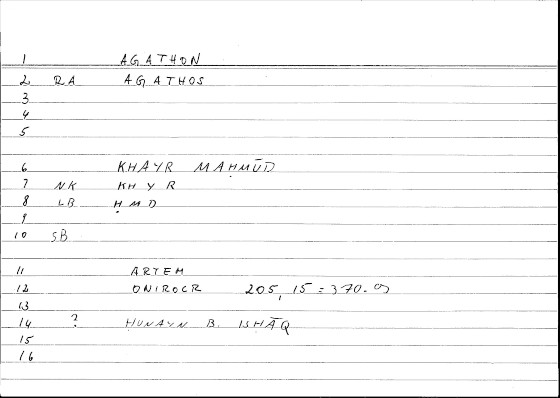 1 AGATHON
2 RA AGATHOS
3
4
5
6 KHAYR MAḤMŪD
7 NK KHYR
8 LB ḤMD
9
10 SB
11 ARTEM
12 ONIROCR 205, 15 = 370.9
13
14 ? ḤUNAYN B. ISḤĀQ
15
16